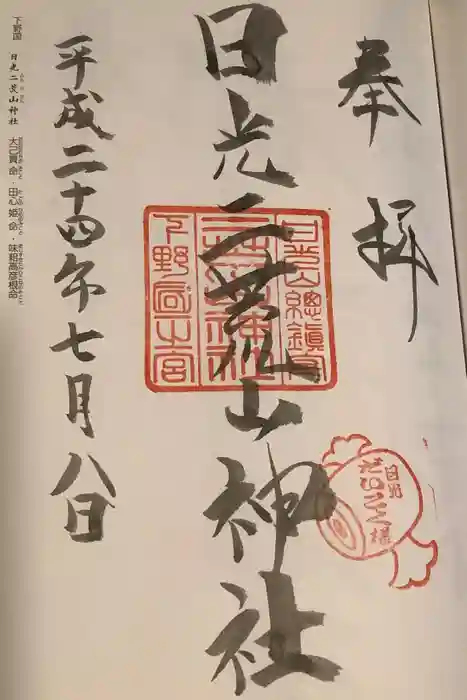 奉拝
日光二荒山神社
日光山總鎮守
二荒山神社
下野國一宮
日光
だいこく様
平成二十四年七月八日
下野国 日光二荒山神社 大己貴命・田心姫命・味耜高彦根命